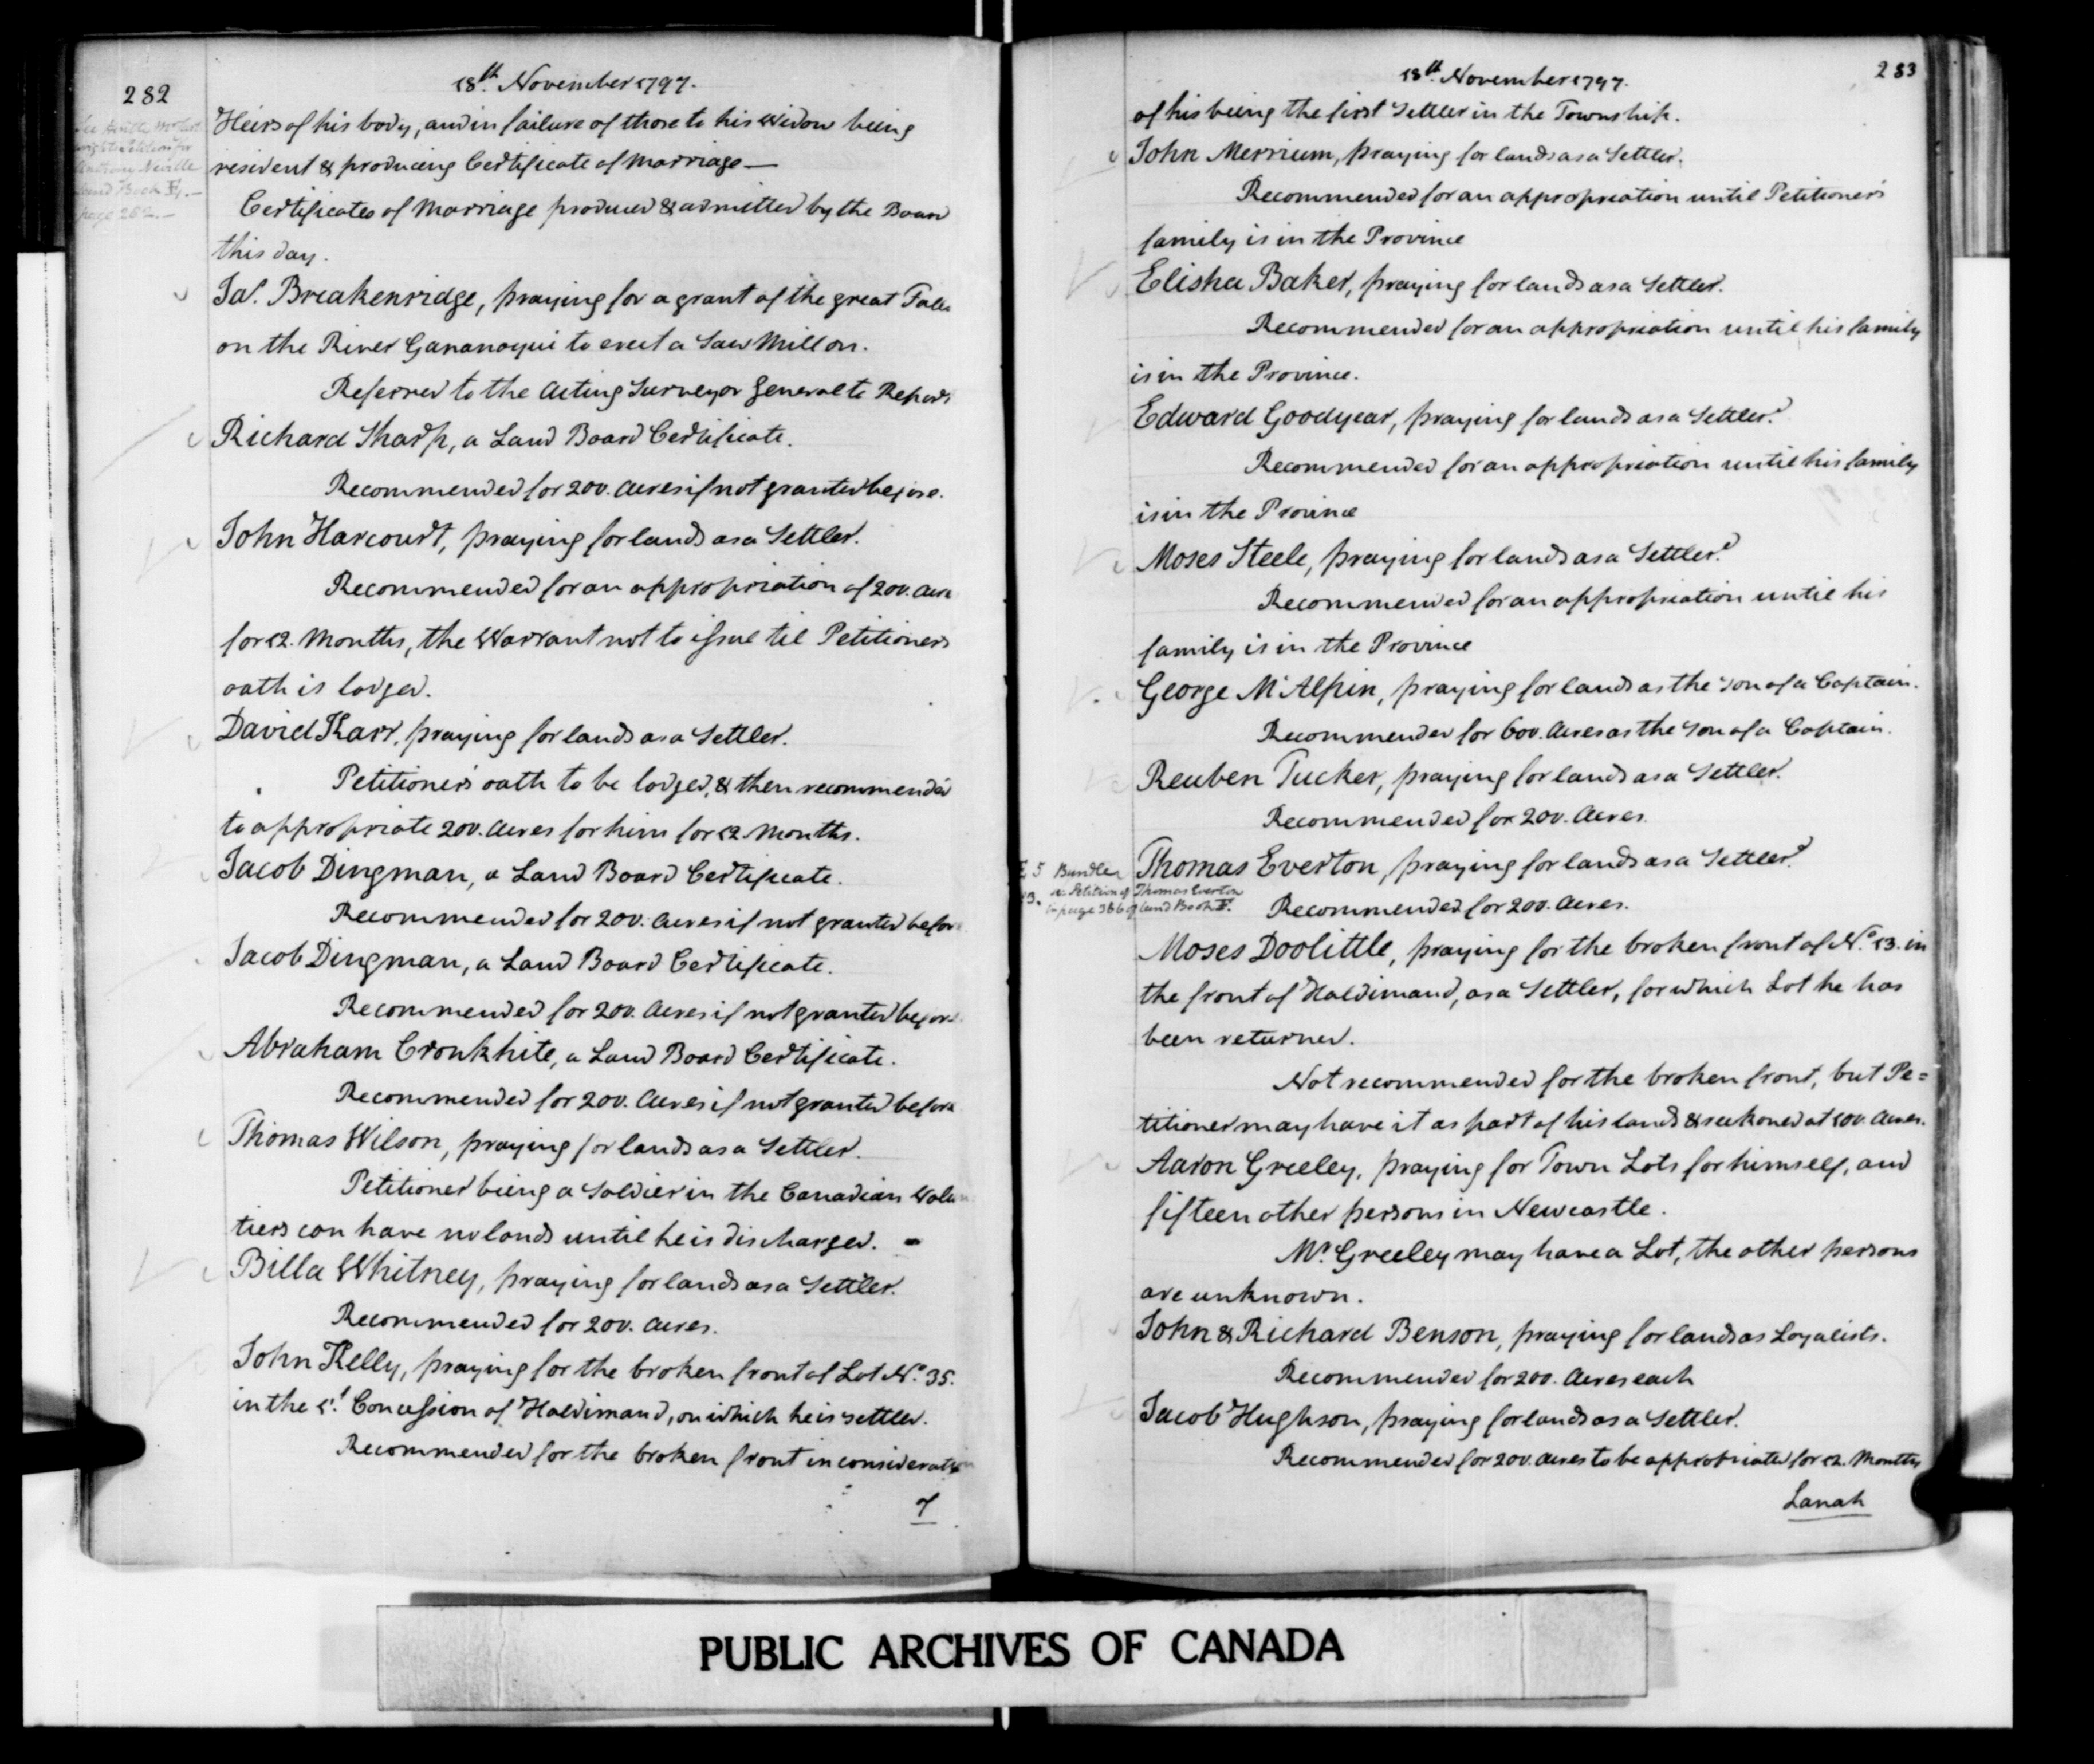 282
18th. November 1797.
Heirs of his body, and in failure of those to his Widow being
resident & producing Certificate of Marriage —
Certificates of Marriage produced & admitted by the Board
this day.
Jas. Breakenridge, praying for a grant of the great Falls
on the River Gananoqui to erect a Saw Mill on.
Referred to the Acting Surveyor General to Report.
Richard Sharp, a Land Board Certificate.
Recommended for 200. Acres if not granted before.
John Harcourt, praying for lands as a Settler.
Recommended for an appropriation of 200. Acre
for 12. Months, the Warrant not to issue til Petitioners
oath is lodged.
David Karr, praying for lands as a Settler.
Petitioner's oath to be lodged, & then recommended
to appropriate 200. Acres for him for 12 Months.
Jacob Dingman, a Land Board Certificate.
Recommended for 200. Acres if not granted before
Jacob Dingman, a Land Board Certificate.
Recommended for 200. Acres if not granted before
Abraham Cronkhite, a Land Board Certificate.
Recommended for 200. Acres if not granted before
Thomas Wilson, praying for lands as a Settler.
Petitioner being a Soldier in the Canadian Volun
tiers can have no lands until he is discharged. —
Billa Whitney, praying for lands as a Settler.
Recommended for 200. Acres.
John Kelly, praying for the broken front of Lot No. 35.
in the 1st. Concession of Haldimand, on which he is settled.
Recommended for the broken front in consideration
See
Petition for
Anthony Neville
Land Book
page 262. —
18th. November 1797.
283
of his being the first Settler in the Township.
John Merrium, praying for lands as a Settler.
Recommended for an appropriation until Petitioner's
family is in the Province
Elisha Baker, praying for lands as a Settler.
Recommended for an appropriation until his family
is in the Province.
Edward Goodyear, praying for lands as a Settler.
Recommended for an appropriation until his family
is in the Province
Moses Steele, praying for lands as a Settler.
Recommended for an appropriation until his
family is in the Province
George McAlpin, praying for lands as the Son of a Captain.
Recommended for 600. Acres as the Son of a Captain.
Reuben Tucker, praying for lands as a Settler.
Recommended for 200. Acres.
E 5 Bundle
Petition of Thomas Everton
in page 366 of Land Book
Thomas Everton, praying for lands as a Settler.
Recommended for 200. Acres.
Moses Doolittle, praying for the broken front of No. 13. in
the front of Haldimand, as a Settler, for which Lot he has
been returned.
Not recommended for the broken front, but Pe=
titioner may have it as part of his lands & reckoned at 100. Acres.
Aaron Greeley, praying for Town Lots for himself, and
fifteen other persons in Newcastle.
Mr. Greeley may have a Lot, the other persons
are unknown.
John & Richard Benson, praying for lands as Loyalists.
Recommended for 200. Acres each
Jacob Hughson, praying for lands as a Settler.
Recommended for 200. Acres to be appropriated for 12. Months
Lanah
PUBLIC ARCHIVES OF CANADA